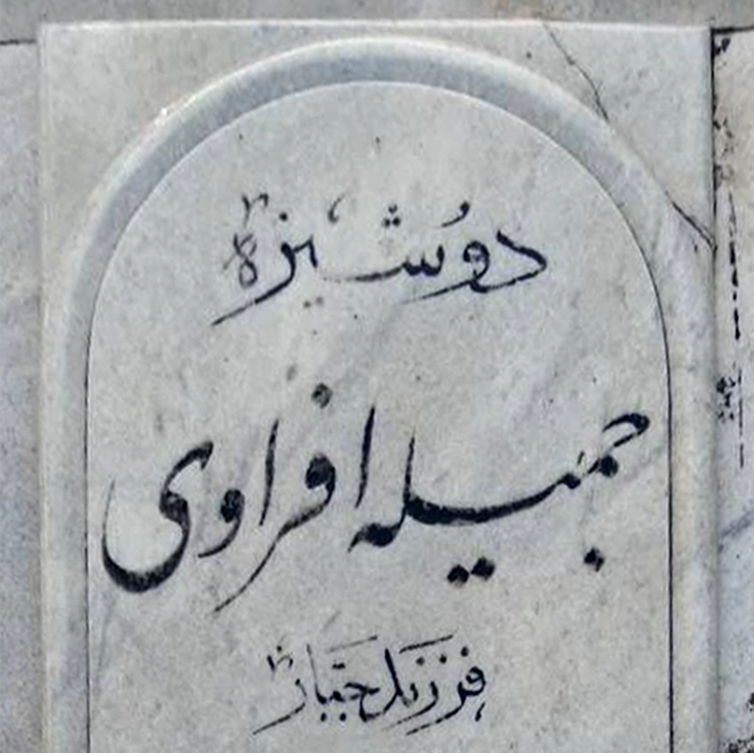 دوشیزه
جمیله افراوی
فرزند جبار